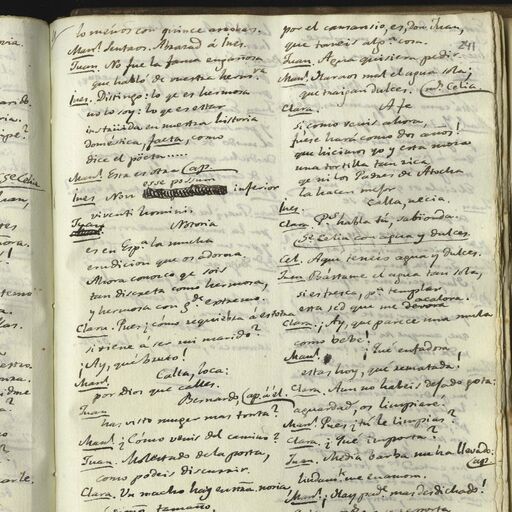 lo menos con quince arrobas.
Man.l Sentaos. Abrazad á Ines.
Juan. No fue la fama engañosa
que habló de vuestra herm.ra
Ines. Distingo: lo q.e es hermosa
no lo soy: lo q.e es estar
instruida en nuestra historia
doméstica, facta, como
dice el pöeta.....
Man.l Esta es otra (ap.
Ines Non esse possum inferior
viventi hominis
Juan Notoria
es en Esp.a la mucha
erudicion que os adorna.
Ahora conozco q.e sois
tan discreta como hermosa,
y hermosa con g.de extremo.
Clara. Pues, ¿cómo requiebra á esotra
si viene á ser mi marido?
¡Ay, qué bruto!
Man.l Calla, loca:
por Dios que calles.
Juan Bernardo (ap. á él
has visto muger mas tonta?
Man.l ¿Cómo venis del camino?
Juan. Molestado de la posta,
como podeis discurrir.
Clara. Un macho hay en ntra. noria,
tamaño
241
por el cansancio, es, don Juan,
que tomeis alg.a cosa.
Juan. Agua quisiera pedir.
Man.l Haraos mal el agua sola;
que traigan dulces. (v.se Celia
Clara. A fe
si como vais ahora,
fuese hará como dos años!
que hicimos yo y esta mora
una tortilla tan rica
que ni los Padres de Atocha
la hacen mejor
Ines Calla, necia
Clara P.s habla tú, sabionda.
S.e Celia con agua y dulces.
Cel. Aqui teneis agua y dulces.
Juan Bástame el agua tan sola,
si es fresca, p.a templar
esta sed que me devora.
Clara. ¡Ay, que parece una mula acalora.
como bebe!
Man.l ¡Qué enfadosa
estas hoy, que rematada!
Clara Aun no habeis dejado gota:
aguardad, os limpiare.
Man.l Pues, ¿tú le limpias?
Clara. ¿Qué importa?
Juan. Media barba me ha llevado. (ap.
Man.l ¡Hay pad.e mas desdichado!